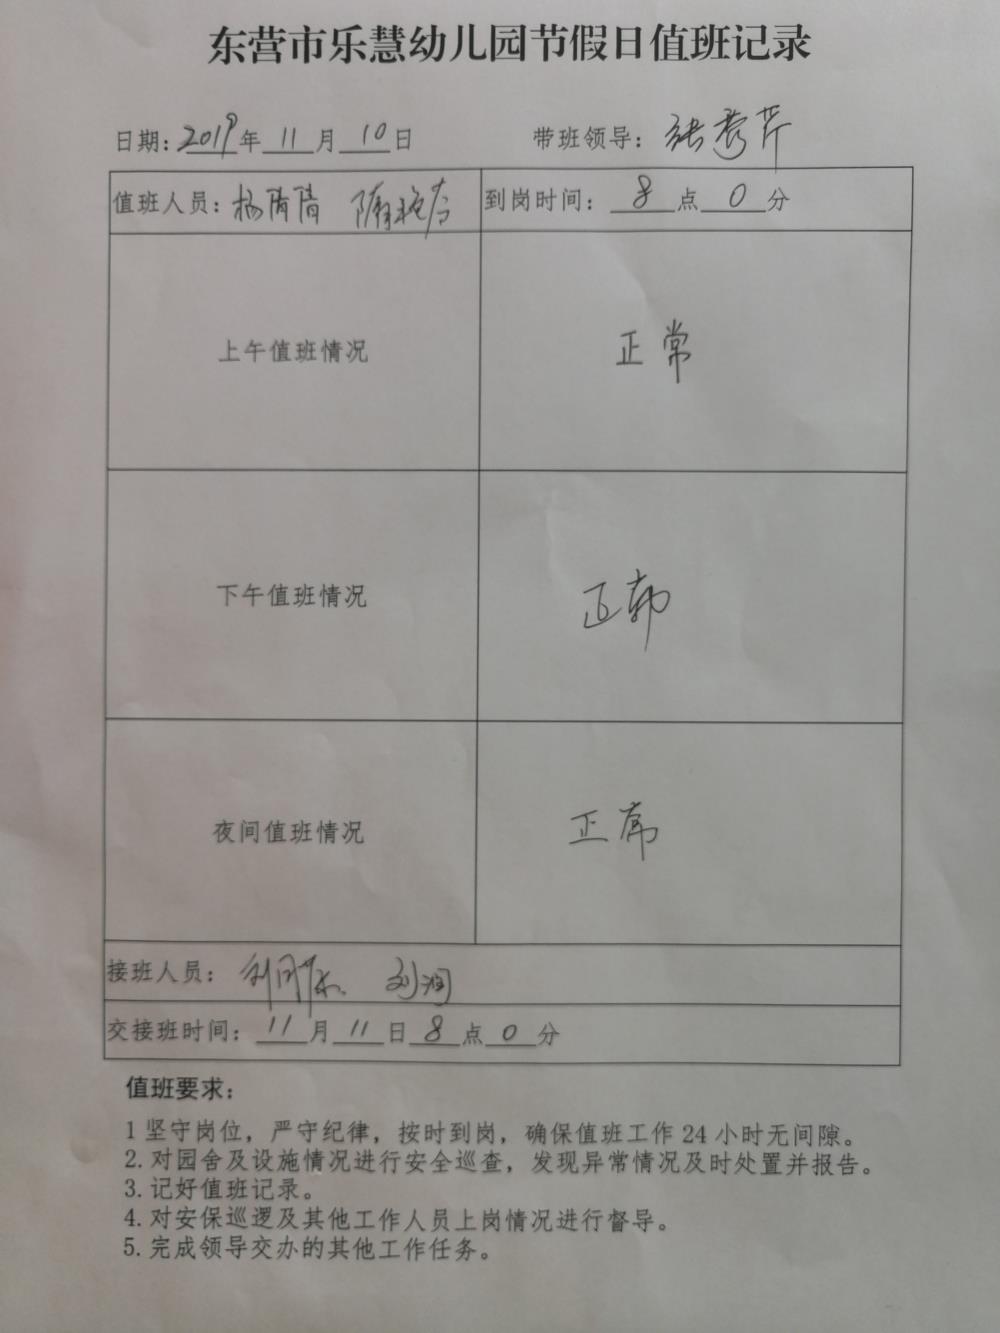 东营市乐慧幼儿园节假日值班记录
日期:2019年11月10日 带班领导:张秀芹
值班人员:杨倩倩 隋艳 到岗时间:8点0分
上午值班情况 正常
下午值班情况 正常
夜间值班情况 正常
接班人员: 刘润
交接班时间:11月11日8点0分
值班要求:
1坚守岗位,严守纪律,按时到岗,确保值班工作24小时无间隙。
2.对园舍及设施情况进行安全巡查,发现异常情况及时处置并报告。
3.记好值班记录。
4.对安保巡逻及其他工作人员上岗情况进行督导。
5.完成领导交办的其他工作任务。